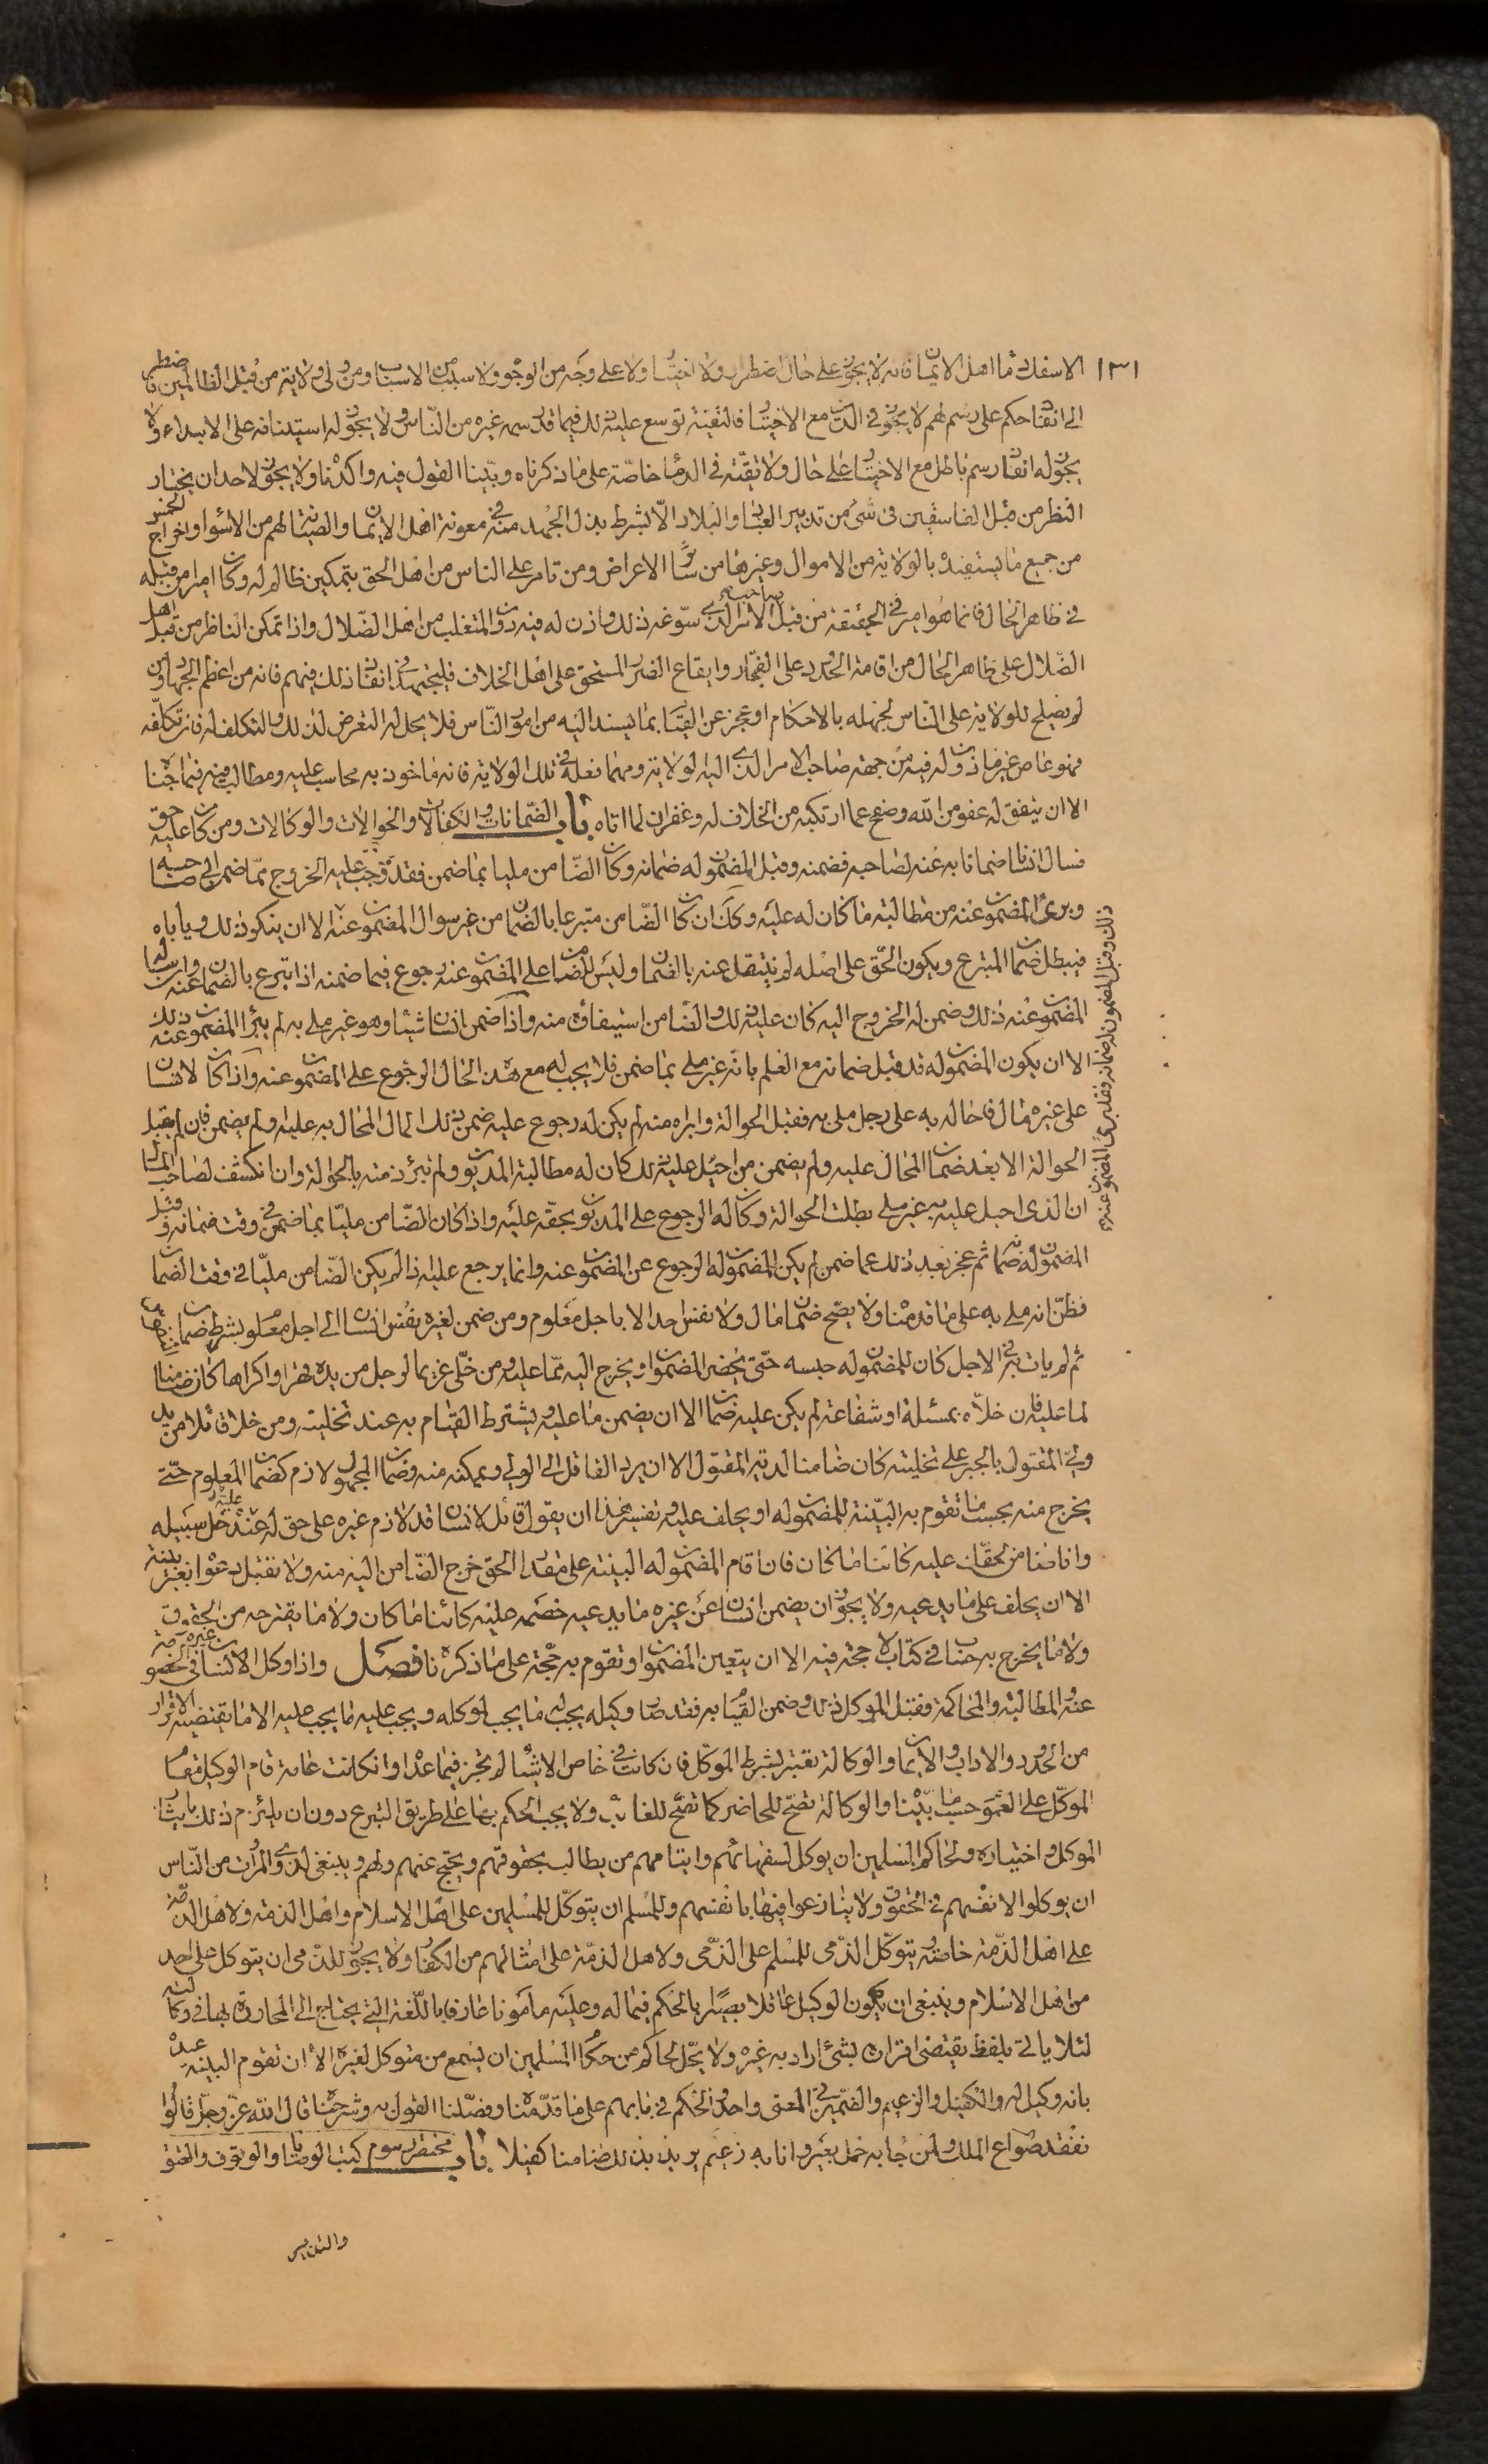 ١٣١
الا سفك دماء اهل الايمان فانه لا يجوز على حال اضطرار ولا اختيار ولا على وجه من الوجوه ولا سبب من الاسباب ومن ولى ولاية من قبل الظالمين فاضطر
الى انفاذ حكم على رسم لهم لا يجوز فى الدين مع الاختيار فالتقية توسع عليه ذلك فيما قد رسمه غيره من الناس ولا يجوز له استينافه على الابتداء ولا
يجوز له انفاذ رسم باطل مع الاختيار على حال ولا تقية فى الدماء خاصة على ما ذكرناه وبينا القول فيه واكدناه ولا يجوز لاحد ان يختار
النظر من قبل الفاسقين فى شئ من تدبير العباد والبلاد الا بشرط بذل الجهد منه فى معونة اهل الايمان والصيانة لهم من الاسواء واخراج الخمس
من جميع ما يستفيده بالولاية من الاموال وغيرها من سائر الاعراض ومن تامر على الناس من اهل الحق بتمكين ظالم له وكان اميرا من قبله
فى ظاهر الحال فانما هو امير فى الحقيقة من قبل صاحب الامر الذى سوغه ذلك واذن له فيه دون المتغلب من اهل الضلال واذا تمكن الناظر من قبل اهل
الضلال على ظاهر الحال من اقامة الحدود على الفجار وايقاع الضرر المستحق على اهل الخلاف فليجتهد فى انفاذ ذلك فيهم فانه من اعظم الجهاد ومن
لم يصلح للولاية على الناس لجهله بالاحكام او عجز عن القيام بما يسند اليه من امور الناس فلا يحل له التعرض لذلك والتكلف له فان تكلفه
فهو عاص غير ماذون له فيه من جهة صاحب الامر الذى اليه الولاية ومهما فعله فى تلك الولاية فانه ماخوذ به محاسب عليه ومطالب فيه بما جناه
الا ان يتفق له عفو من الله وصفح عما ارتكبه من الخلاف له وغفران لما اتاه باب الضمانات والكفالات والحوالات والوكالات ومن كان عليه حق
فسال انسانا ضمانا به عنه لصاحبه فضمنه وقبل المضمون له ضمانه وكان الضامن مليا بما ضمن فقد وجب عليه الخروج مما ضمن الى صاحبه
وبرئ المضمون عنه من مطالبته ما كان له عليه وكك ان كان الضامن متبرعا بالضمان من غير سوال المضمون عنه الا ان ينكر ذلك وياباه
فيبطل ضمان المتبرع ويكون الحق على اصله لم ينتقل عنه بالضمان وليس للضامن على المضمون عنه رجوع فيما ضمنه اذا تبرع بالضمان عنه وان ساله
المضمون عنه ذلك وضمن له الخروج اليه كان عليه ذلك وللضامن استيفاؤه منه واذا ضمن انسان شيئا وهو غير ملى به لم يبرأ المضمون عنه ذلك
الا ان يكون المضمون له قد قبل ضمانه مع العلم بانه غير ملى بما ضمن فلا يجب له مع هذه الحال الرجوع على المضمون عنه واذا كان لانسان
على غيره مال فاحاله به على رجل ملى به فقبل الحوالة وابراه منه لم يكن له رجوع عليه ضمن ذلك المال المحال به عليه ولم يضمن فان لم يقبل
الحوالة الا بعد ضمان المحال عليه ولم يضمن من احيل عليه ذلك كان له مطالبة المديون ولم تبرء ذمته بالحوالة وان انكشف لصاحب المال
ان الذى احيل عليه به غير ملى بطلت الحوالة وكان له الرجوع على المديون بحقه عليه واذا كان الضامن مليا بما ضمن فى وقت ضمانه وقبل
المضمون له ضمانه ثم عجز بعد ذلك عما ضمن لم يكن للمضمون له الرجوع عن المضمون عنه وانما يرجع عليه اذا لم يكن الضامن مليا فى وقت الضمان
فظن انه ملى به على ما قدمناه ولا يصح ضمان مال ولا نفس احد الا باجل معلوم ومن ضمن لغيره نفس انسان الى اجل معلوم بشرط ضمان
ثم لم يات به فى الاجل كان للمضمون له حبسه حتى يحضر المضمون او يخرج اليه مما عليه ومن خلى غريما لرجل من يده قهرا او اكراها كان ضامنا
لما عليه فان خلاه بمسئلة او شفاعة لم يكن عليه ضمان الا ان يضمن ما عليه ويشترط القيام به عند تخليته ومن خلى قاتلا من يد
ولى المقتول بالجبر على تخليته كان ضامنا لدية المقتول الا ان يرد القاتل الى الولى ويمكنه منه وضمان المجهول لازم كضمان المعلوم حتى
يخرج منه بحسب ما تقوم به البينة للمضمون له او يحلف عليه وتفسير هذا ان يقول قائل لانسان قد لازم غيره على حق له عليه خل سبيله
وانا ضامن لحقك عليه كائنا ما كان فان اقام المضمون له البينة على مقدار الحق خرج الضامن اليه منه ولا تقبل دعواه بغير بينة
الا ان يحلف على ما يدعيه ولا يجوز ان يضمن انسان عن غيره ما يدعيه خصمه عليه كائنا ما كان ولا ما يقترحه من الحقوق
ولا ما يخرج به حساب فى كتاب لا حجة فيه الا ان يتعين المضمون او تقوم به حجة على ما ذكرناه فصل واذا وكل الانسان غيره فى الخصومة
عنه والمطالبة والمحاكمة فقبل الموكل ذلك وضمن القيام به فقد صار وكيله يجب له ما يجب لموكله ويجب عليه ما يجب عليه الا ما يقتضيه الاقرار
من الحدود والاداب والايمان والوكالة تعتبر بشرط الموكل فان كانت فى خاص الاشياء لم تجز فيما عداه وان كانت عامة قام الوكيل مقام
الموكل على العموم حسب ما بيناه والوكالة تصح للحاضر كما تصح للغائب ولا يجب الحكم بها على طريق التبرع دون ان يلتزم ذلك بايثار
الموكل واختياره ولحاكم المسلمين ان يوكل لسفهائهم وايتامهم من يطالب بحقوقهم ويحتج عنهم ولهم وينبغى لذوى المروات من الناس
ان يوكلوا لانفسهم فى الحقوق ولا ينازعوا فيها بانفسهم وللمسلم ان يتوكل للمسلمين على اهل الاسلام واهل الذمة ولاهل الذمة
على اهل الذمة خاصة يتوكل الذمى للمسلم على الذمى ولاهل الذمة على امثالهم من الكفار ولا يجوز للذمى ان يتوكل على احد
من اهل الاسلام وينبغى ان يكون الوكيل عاقلا بصيرا بالحكم فيما له وعليه مامونا عارفا باللغة التى يحتاج الى المحاورة بها فى وكالته
لئلا ياتى بلفظ يقتضى اقرارا بشئ اراد به غيره ولا يحل لحاكم من حكام المسلمين ان يسمع من متوكل لغيره الا ان تقوم البينة عنده
بانه وكيل له والكفيل والزعيم والضمين فى المعنى واحد والحكم فى بابهم على ما قدمناه وفصلنا القول به وشرحناه قال الله عز وجل قالوا
نفقد صواع الملك ولمن جاء به حمل بعير وانا به زعيم يريد بذلك ضامنا كفيلا باب مختصر رسوم كتب الوصايا والوقوف والعتق
ذلك وقبل المضمون له ضمانه فقد برئ المضمون عنه